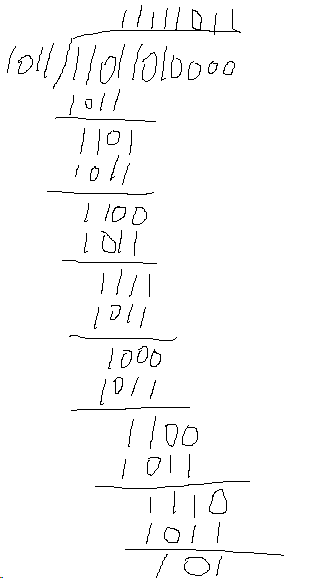 11111011
1011/11011010000
1011
1101
1011
1100
1011
1111
1011
1000
1011
1100
1011
1110
1011
101